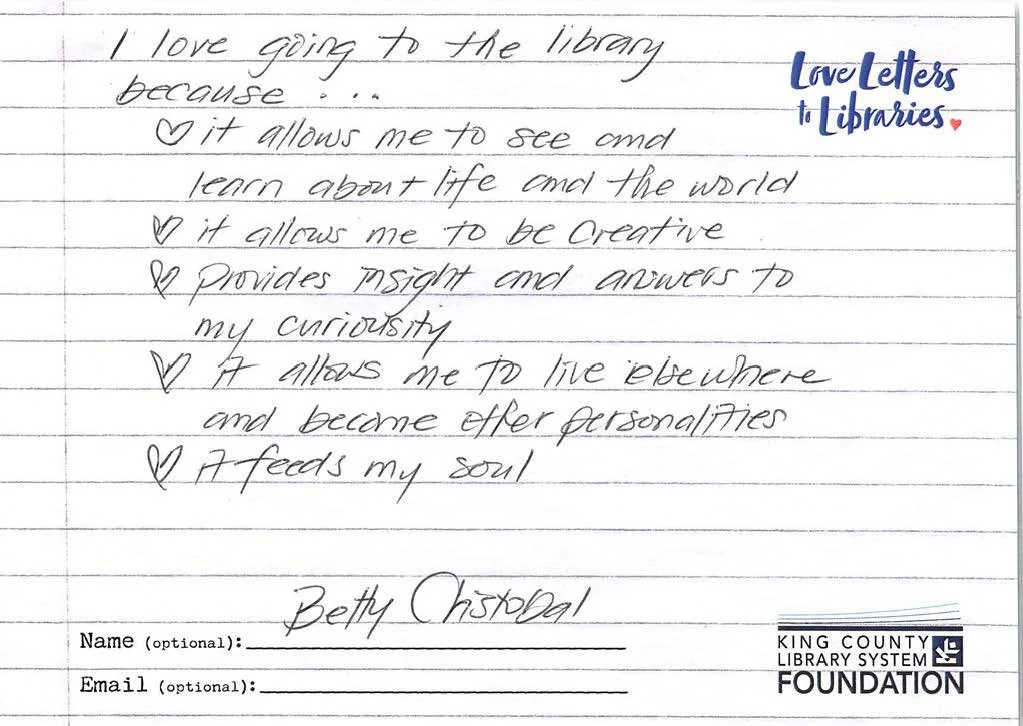 I love going to the library
because . . .
♡ it allows me to see and
learn about life and the world
♡ it allows me to be Creative
♡ provides insight and answers to
my curiousity
♡ it allows me to live elsewhere
and become other personalities
♡ it feeds my soul
Betty Chistobal
Name (optional):
Email (optional):
Love Letters
to Libraries
KING COUNTY
LIBRARY SYSTEM
FOUNDATION